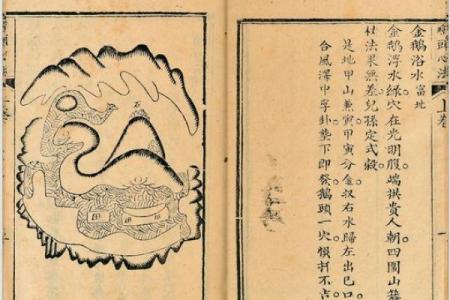 心法 上卷
金鵝浴水 富地
金鵝浮水綠穴在光明腹端拱貴人朝四圍山簇
法果無差兒孫定式穀
是地甲山兼寅甲寅分金収右水歸左出巳口
合風澤中孚卦墊下即發鵝頭一穴慎扦不吉
石
田
田